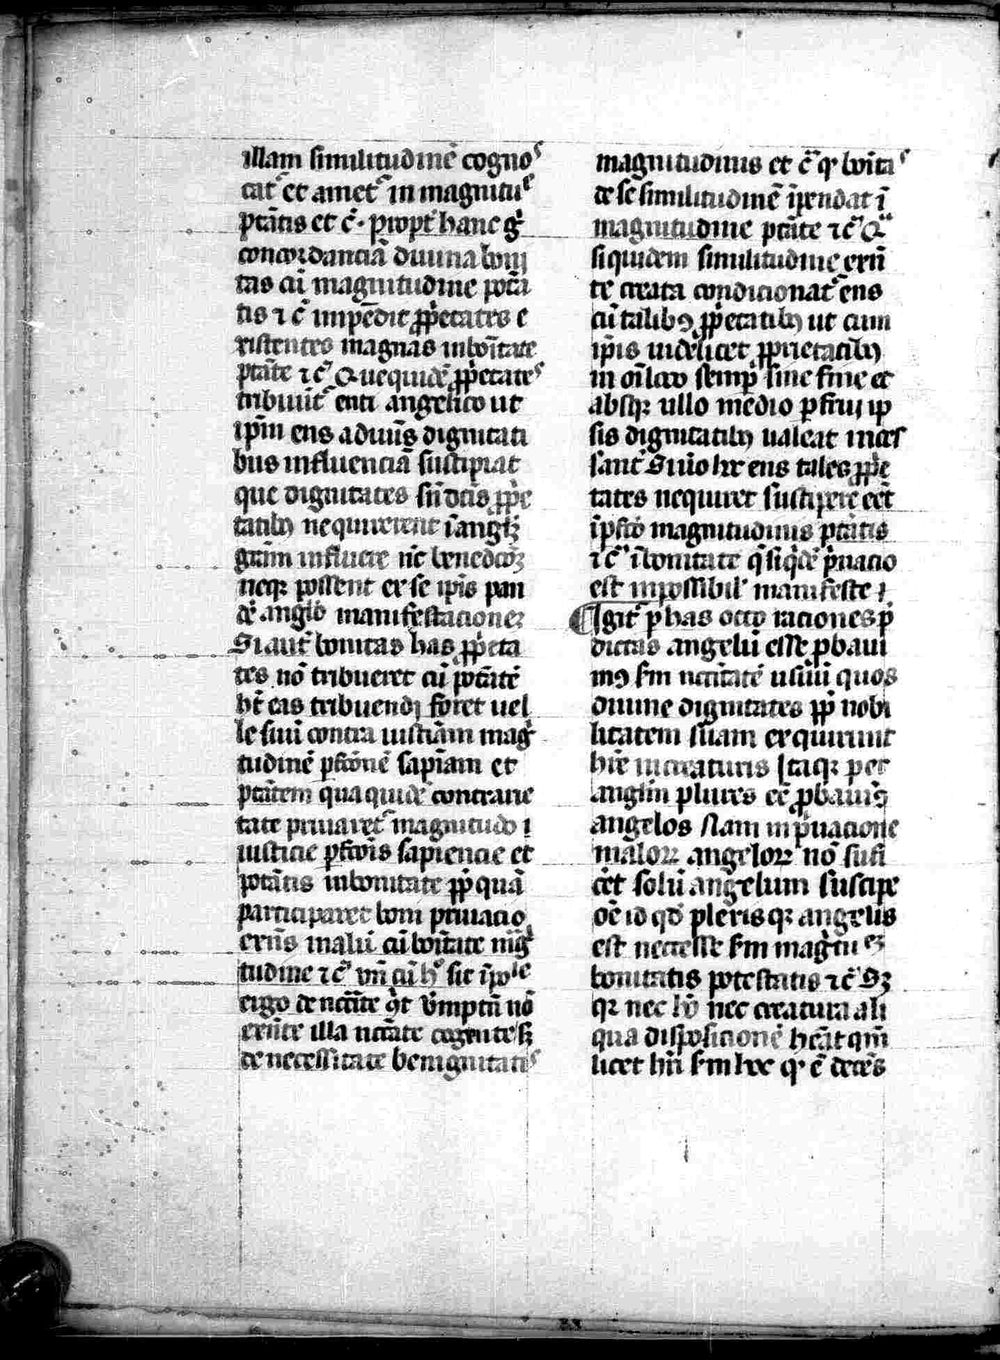 illam similitudinē cogno
cat᷑ et amet᷑ in magnitu
ptātis et c̄. propt̄ hanc gͥ
concordanciā diuina boni
tas cū magnitudine potā
tis ⁊ c̄ impendit ꝓp̄etates e
xistentes magnas in boītate
ptāte ⁊ c̄ Que quidē ꝓp̄etates
tribuūt enti angelico ut
ip̄m ens a diuīs dignitati
bus influenciā suscipiat
que dignitates sn̄ dcīs ꝓp̄e
tatibꝫ nequirerent ī angłꝫ
grām influere nc̄ benedcōꝫ
neqꝫ possent ex se ip̄is pan
dē anglō manifestacionēꝫ
Si aut̄ bonitas has ꝓp̄eta
tes nō tribueret cū potātē
ht̄ eas tribuendi foret uel
le suū contra iusticiam mag
tudinē ꝑfcōnē sapiām et
ptātem qua quidē contrarie
tate priuaret᷑ magnitudo i
iusticie ꝑfcōis sapiencie et
potātis in bonitate ꝓp̄ quā
participaret boni priuacio
exn̄s malū cū boītate mag
tudine ⁊ c̄ vn̄ cū hͦ sit īpoˡᵉ
ergo de nctāte ꝯt̄ v̄mptū nō
exn̄te illa nctāte cogente sꝫ
de necessitate benignitatis
magnitudinis et c̄ qꝫ boīta
te se similitudinē īpendat ī
magnitudine ptāte ⁊ c̄ Qᵃ
siquidem similitudine exn̄
te creata condicionat᷑ ens
cū talibꝫ ꝓp̄etatibꝫ ut cum
ip̄is uidelicet ꝓprietatibꝫ
in oī loco semp̄ sine fine et
absqꝫ ullo medio ꝑfrui ip
sis dignitatibꝫ ualeat inces
sant᷑ Si uͦ hͨ ens tales ꝓp̄e
tates nequiret suscipere eēt
īpfcō magnitudinis ptātis
⁊ c̄ ī bonitate q̄ siqͥdē pͥuacio
est inpossibilˀ manifeste
¶ Igit᷑ ꝑ has octo raciones p̄
dictas angelū esse ꝓbaui
mꝰ scdm nctītatē usiuū quos
diuine dignitates ꝓp̄ nobi
litatem suam exquirunt
hr̄e in creaturis Itaqꝫ per
anglm plures eē ꝓbauīꝰ
angelos Nam in pͥuacione
malorꝫ angelorꝫ nō sufi
cēt solū angelum suscipe
oē id qd̄ pleris qꝫ angelis
est necesse scdm magtu
bonitatis potestatis ⁊ c̄ Sꝫ
qꝫ nec hō nec creatura ali
qua disposicionē hēat qm̄
licet hn̄i scdm hoc qꝫ ē decēs